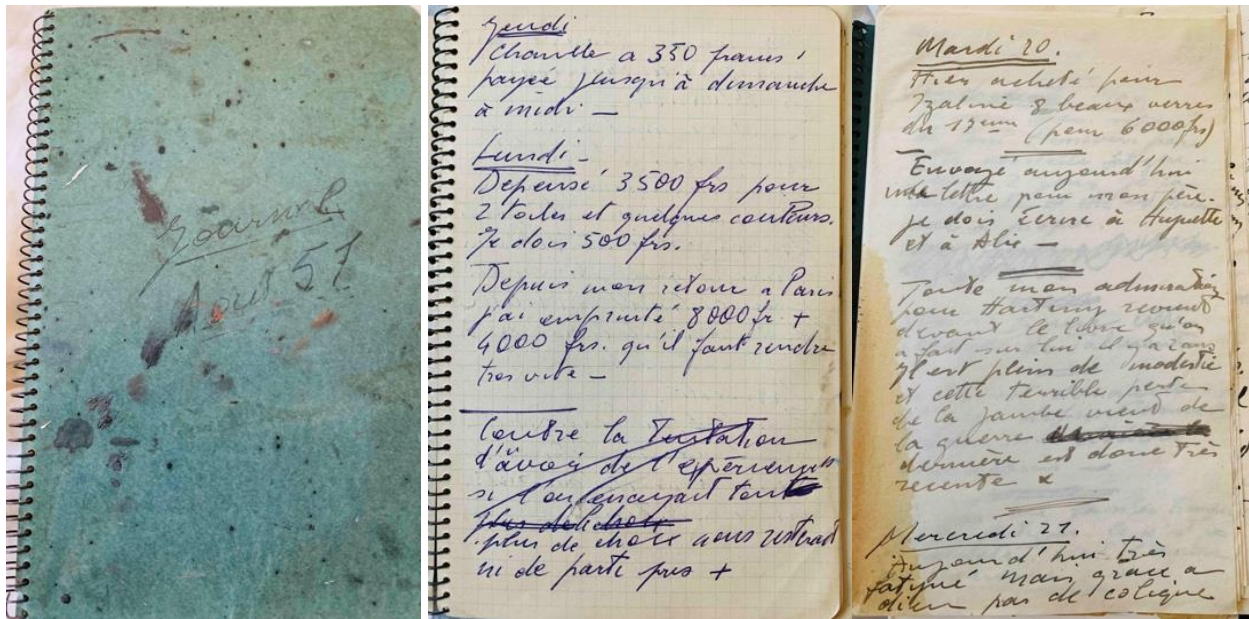 Journal
Août 51
Jeudi
Chambre a 350 francs
payée jusqu'à dimanche
à midi —
Lundi -
Dépensé 3500 frs pour
2 toiles et quelques couleurs.
Je dois 500 frs.
Depuis mon retour a Paris
j'ai emprunté 8000 fr +
4000 frs. qu'il faut rendre
tres vite —
Contre la tentation
d'avoir de l'expérience
si l'on essayait tout
plus de choix
plus de choix nous restant
ni de parti pris +
Mardi 20.
Hier acheté pour
8 beaux verres
du 17eme (pour 6000 frs)
Envoyé aujourd'hui
une lettre pour mon père.
Je dois écrire à Huguette
et à Alie —
Toute mon admiration
pour Hartung revient
devant le livre qu'on
a fait sur lui il y a 2 ans
Il est plein de modestie
et cette terrible perte
de la jambe vient de
la guerre
dernière est donc très
recente x
Mercredi 21.
Aujourd'hui très
fatigué mais grace a
dieu pas de colique